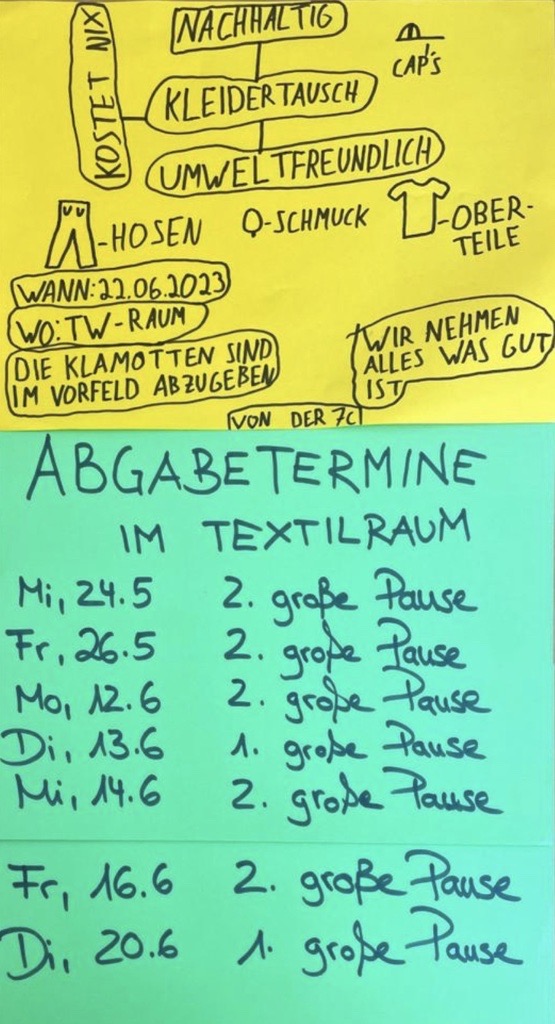 KOSTET NIX
NACHHALTIG
CAP'S
KLEIDERTAUSCH
UMWELTFREUNDLICH
-HOSEN
-SCHMUCK
-OBER-
TEILE
WANN: 22.06.2023
WO: TW-RAUM
DIE KLAMOTTEN SIND
IM VORFELD ABZUGEBEN
WIR NEHMEN
ALLES WAS GUT
IST
VON DER 7C
ABGABETERMINE
IM TEXTILRAUM
Mi, 24.5 2. große Pause
Fr, 26.5 2. große Pause
Mo, 12.6 2. große Pause
Di, 13.6 1. große Pause
Mi, 14.6 2. große Pause
Fr, 16.6 2. große Pause
Di, 20.6 1. große Pause